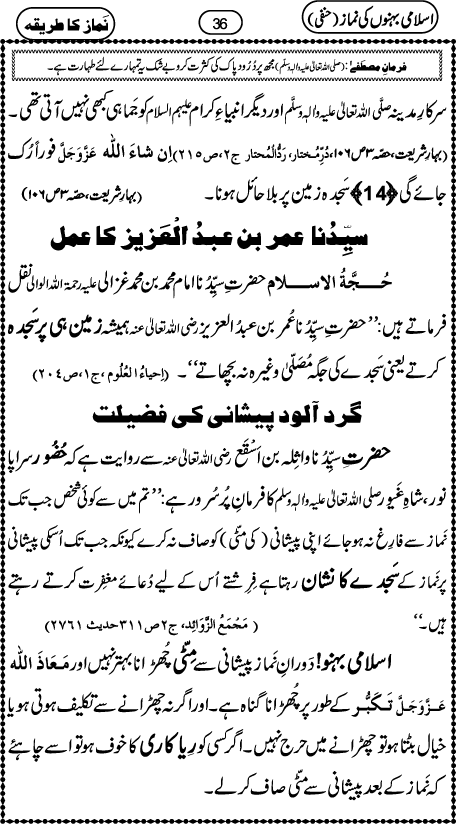 اسلامی بہنوں کی نماز (حنفی) 36 نَماز کا طریقہ
فرمانِ مصطَفٰے: (صلی اللہ تعالیٰ علیہ والہٖ وسلّم) مجھ پر دُرُود پاک کی کثرت کرو بے شک یہ تمہارے لئے طہارت ہے۔
سرکارِ مدینہ صلَّی اللہ تعالیٰ علیہ والہٖ وسلَّم اور دیگر انبیاءِ کرام علیہم السلام کو جماہی کبھی نہیں آتی تھی۔
(بہارِ شریعت، حصّہ ۳ ص ۱۰۶، دُرِّمختار، ردُّالمُحتار ج۲، ص۲۱۵) اِن شاءَ اللہ عَزَّوَجَلَّ فوراً رُک
جائے گی ﴿14﴾ سَجدہ زمین پر بلا حائل ہونا۔ (بہارِ شریعت، حصّہ ۳ ص ۱۰۶)
سیِّدُنا عمر بن عبدُ الْعزیز کا عمل
حُجَّۃُ الاسلام حضرتِ سیِّدُنا امام محمد بن محمد غزالی علیہ رحمۃ اللہ الوالی نقل
فرماتے ہیں: ’’حضرتِ سیِّدُنا عُمر بن عبدُ العزیز رضی اللہ تعالیٰ عنہ ہمیشہ زمین ہی پر سَجدہ
کرتے یعنی سَجدے کی جگہ مُصَلّٰی وغیرہ نہ بچھاتے‘‘۔ (اِحیاءُ العُلُوم، ج۱، ص۲۰۴)
گرد آلود پیشانی کی فضیلت
حضرتِ سیِّدُنا واثِلہ بن اَسْقَع رضی اللہ تعالیٰ عنہ سے روایت ہے کہ حُضُور سراپا
نور، شاہِ غَیُور صلی اللہ تعالیٰ علیہ والہٖ وسلم کا فرمانِ پُرسُرور ہے: ’’تم میں سے کوئی شخص جب تک
نَماز سے فارِغ نہ ہوجائے اپنی پیشانی (کی مٹّی) کو صاف نہ کرے کیونکہ جب تک اُسکی پیشانی
پر نَماز کے سَجدے کا نشان رہتا ہے فِرِشتے اُس کے لیے دُعائے مغفِرت کرتے رہتے
ہیں۔‘‘ (مَجْمَعُ الزَّوائِد، ج۲ ص ۳۱۱ حدیث ۲۷۶۱)
اسلامی بہنو! دَورانِ نَماز پیشانی سے مِٹّی چُھڑانا بہتر نہیں اور مَعَاذَ اللہ
عَزَّوَجَلَّ تکَبُّر کے طور پر چھڑانا گناہ ہے۔ اور اگر نہ چھڑانے سے تکلیف ہوتی ہو یا
خیال بٹتا ہو تو چھڑانے میں حرج نہیں۔ اگر کسی کو رِیاکاری کا خوف ہو تو اسے چاہئے
کہ نَماز کے بعد پیشانی سے مٹّی صاف کر لے۔